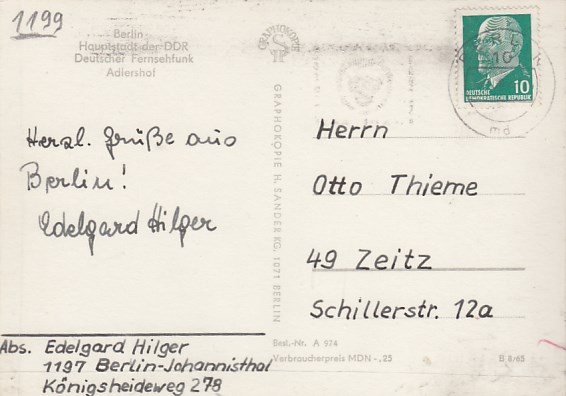 1199
Berlin
Hauptstadt der DDR
Deutscher Fernsehfunk
Adlershof
Herzl. Grüße aus
Berlin!
Edelgard Hilger
Abs. Edelgard Hilger
1197 Berlin-Johannisthal
Königsheideweg 278
GRAPHOKOPIE
GRAPHOKOPIE H. SANDER KG, 1071 BERLIN
10
DEUTSCHE
DEMOKRATISCHE REPUBLIK
BERLIN
10
md
Herrn
Otto Thieme
49 Zeitz
Schillerstr. 12a
Best.-Nr. A 974
Verbraucherpreis MDN -,25
B 8/65